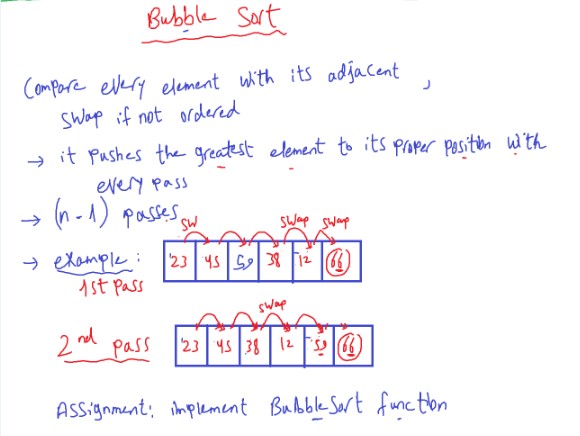 Bubble Sort
Compare every element with its adjacent,
swap if not ordered
→ it pushes the greatest element to its proper position with
every pass
→ (n-1) passes
sw swap swap
→ example: 23 45 59 38 12 66
1st pass
swap
2nd pass 23 45 38 12 59 66
Assignment: implement BubbleSort function